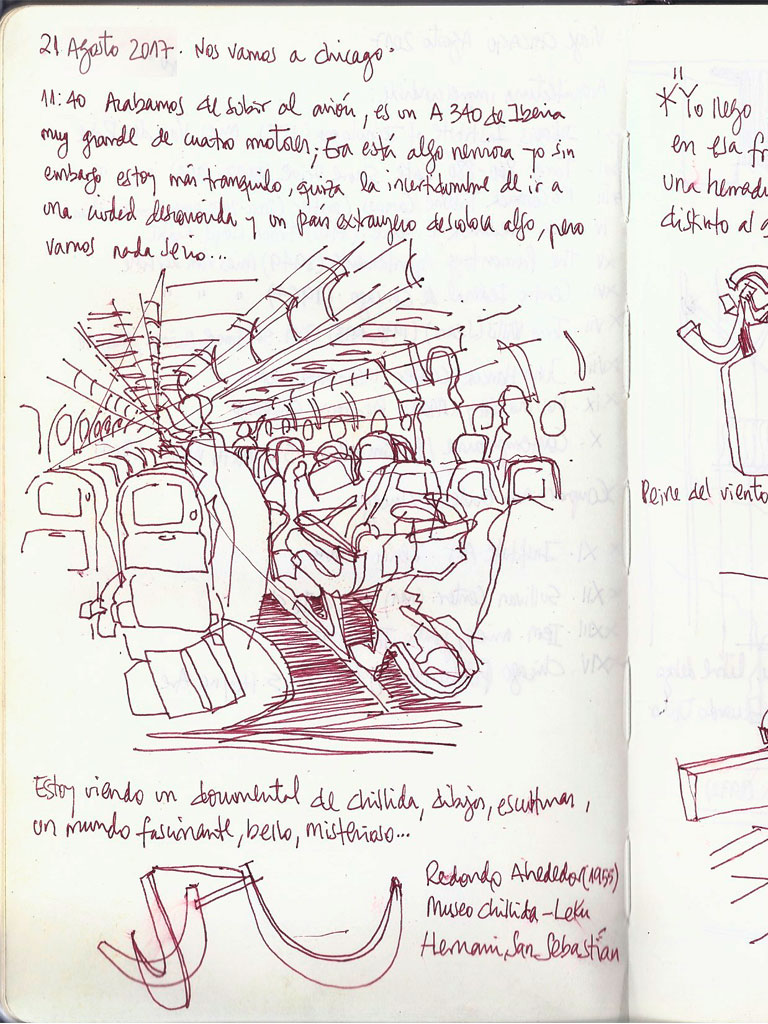 21 Agosto 2017. Nos vamos a chicago.
11:40 Acabamos de subir al avión, es un A 340 de Iberia
muy grande de cuatro motores; Eva está algo nerviosa yo sin
embargo estoy más tranquilo, quiza la incertidumbre de ir a
una ciudad desconocida y un país extranjero descoloca algo, pero
vamos nada serio...
Estoy viendo un documental de chillida, dibujos, esculturas,
un mundo fascinante, bello, misterioso...
Redondo Alrededor (1955)
Museo chillida-Leku
Hernani, San Sebastián
"Yo llego
en esa
una
distinto al
Peine del viento